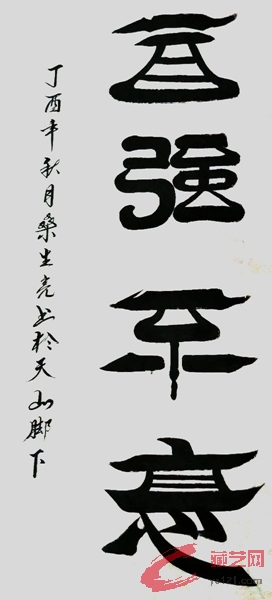 自強不息
丁酉年秋月桑生亮书於天山脚下
藏艺网